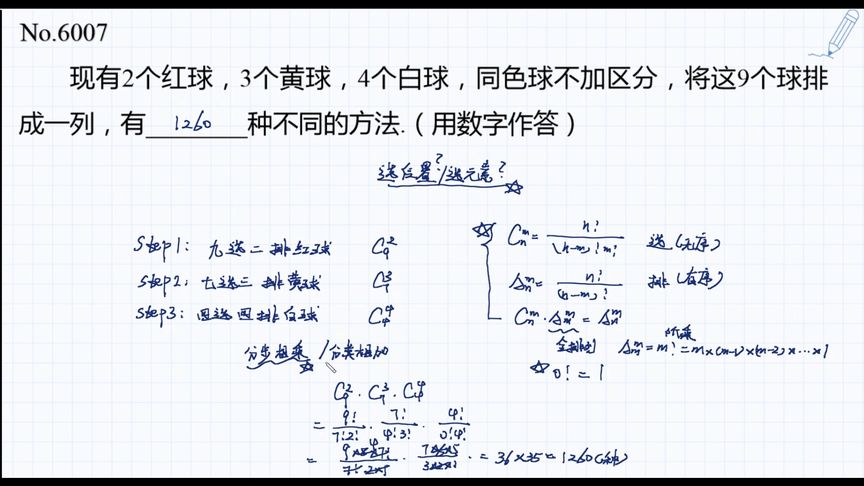 No.6007
现有2个红球，3个黄球，4个白球，同色球不加区分，将这9个球排
成一列，有 1260 种不同的方法.（用数字作答）
选位置?/选元素?
Step1: 九选二排红球 C₉²
Step2: 七选三排黄球 C₇³
Step3: 四选四排白球 C₄⁴
分步相乘/分类相加
C₉²·C₇³·C₄⁴
= 9!/7!2! · 7!/4!3! · 4!/0!4!
= 36×35=1260(种)
Cₙᵐ= n!/(n-m)!m! 选(无序)
Aₙᵐ= n!/(n-m)! 排(有序)
Cₙᵐ·Aₘᵐ=Aₙᵐ
全排列 Aₘᵐ=m!=m×(m-1)×(m-2)×…×1
阶乘
0!=1